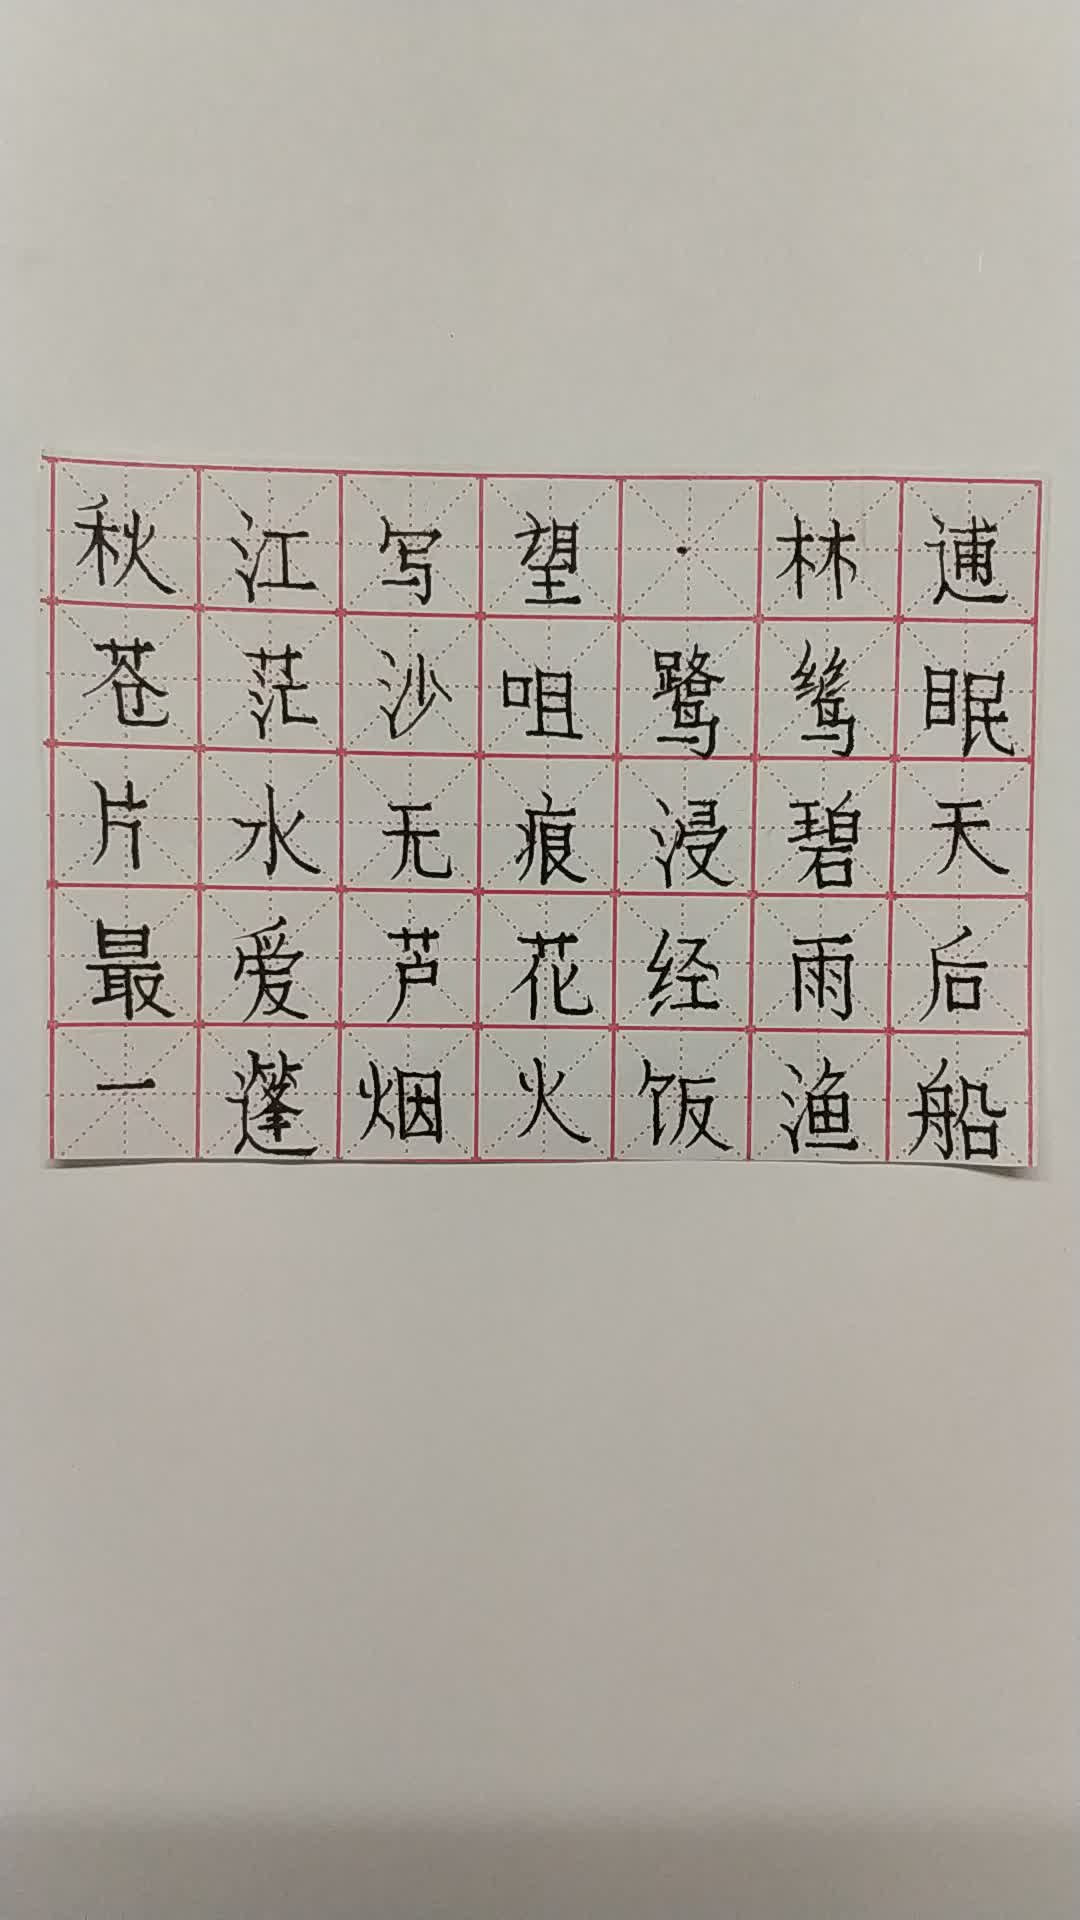 秋江写望·林逋
苍茫沙咀鹭鸶眠
片水无痕浸碧天
最爱芦花经雨后
一蓬烟火饭渔船